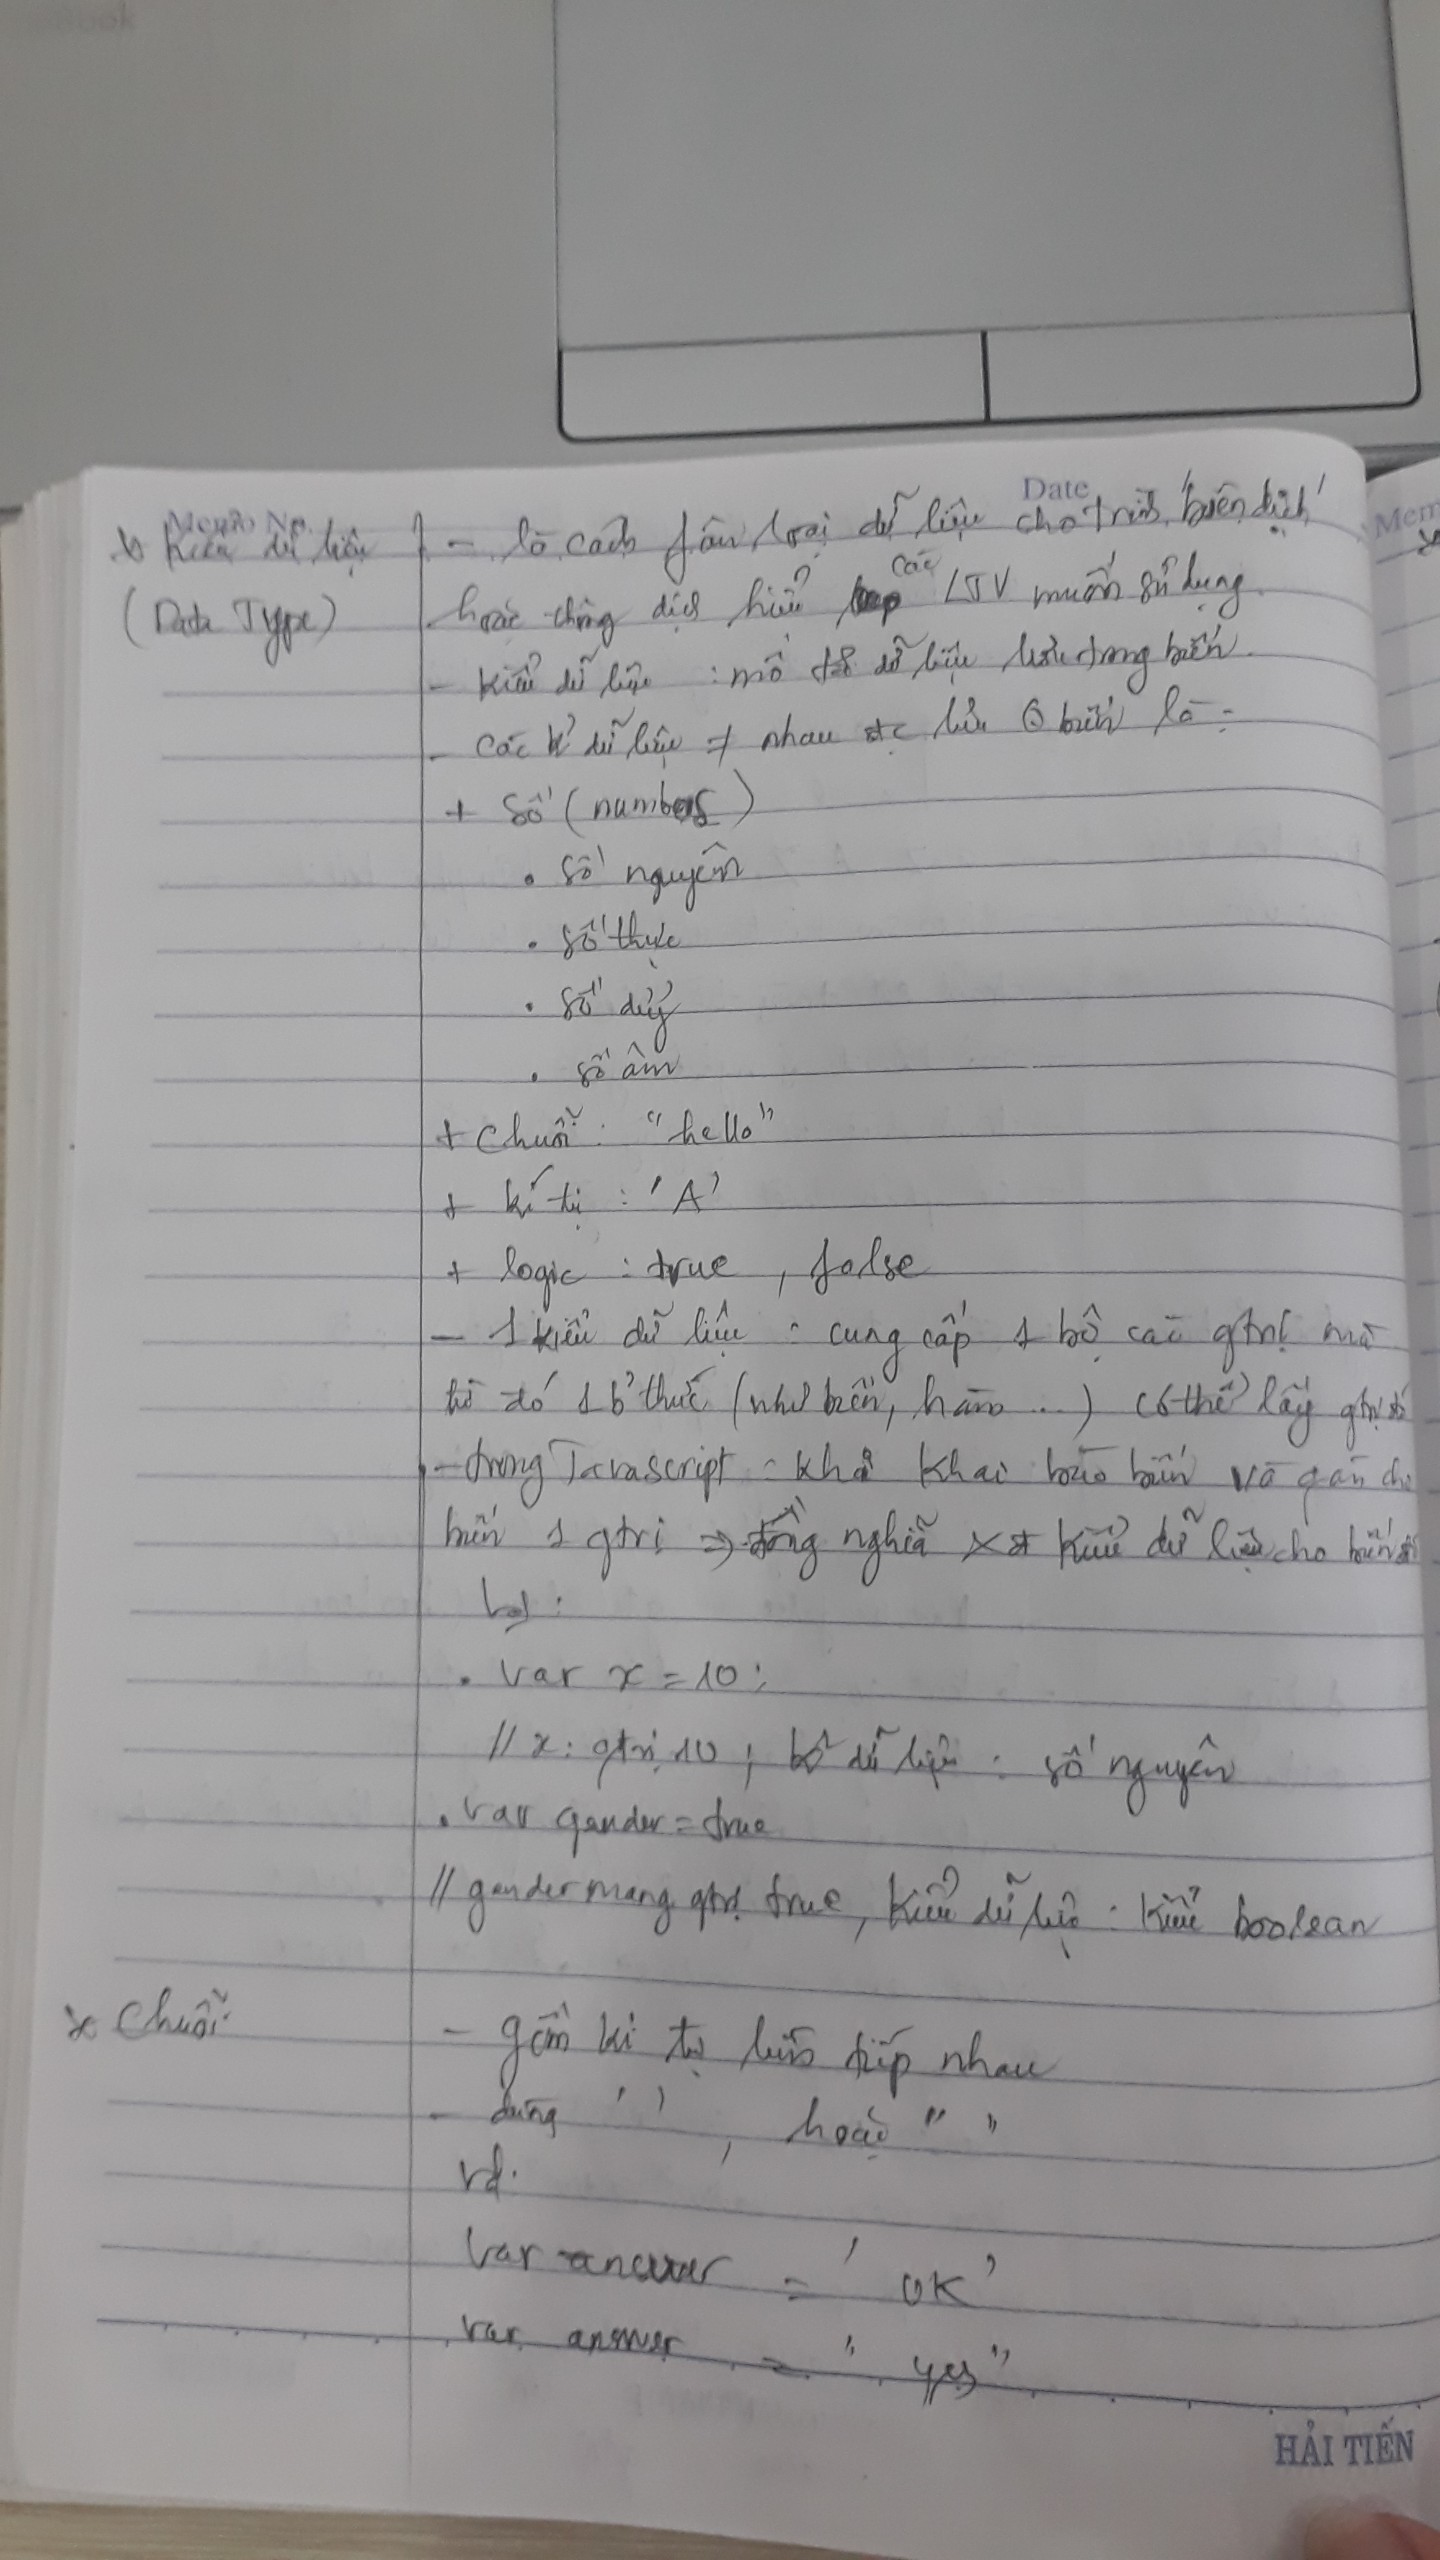 Book
Memo No.
Date
Mem
* Kiểu dữ liệu
(Data Type)
- là cách fân loại dữ liệu cho trình biên dịch
hoặc thông dịch hiểu các LTV muốn sử dụng
- Kiểu dữ liệu : mô tả dữ liệu lưu trong biến
- Các k' dữ liệu ≠ nhau đc lưu ở biến là :
+ Số (numbers)
• Số nguyên
• Số thực
• Số
• Số âm
+ Chuỗi : "hello"
+ kí tự : 'A'
+ logic : true , false
- 1 kiểu dữ liệu : cung cấp 1 bộ các gtrị mà
từ đó 1 b' thức (như biến, hàm ...) có thể lấy gtrị đó
- trong Javascript : khi khai báo biến và gán cho
biến 1 gtrị => đồng nghĩa xđ kiểu dữ liệu cho biến đó
Vd :
• var x = 10 ;
// x : gtrị 10 ; dữ liệu : số nguyên
• var gender = true
// gender mang gtrị true, kiểu dữ liệu : kiểu boolean
* Chuỗi
- gồm kí tự liên tiếp nhau
- dùng ' ' , hoặc " "
vd:
var answer = ' OK '
var answer = " yes "
HẢI TIẾN